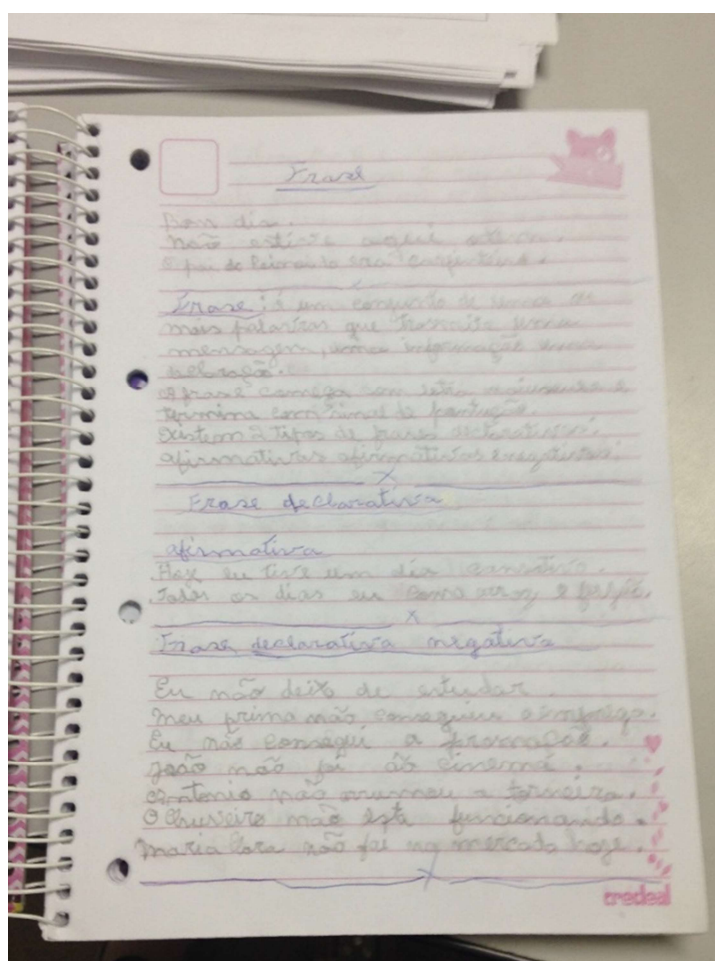 Frase
Bom dia.
não estive aqui ontem.
O pai do Reinaldo era carpinteiro.
Frase é um conjunto de uma ou
mais palavras que trasmite uma
mensagem, uma informação uma
A frase começa com letra maiuscula e
termina com sinal de pontução.
Existem 2 tipos de frases declarativas:
afirmativas afirmativas e negativas.
x
Frase declarativa
afirmativa
Hoje eu tive um dia cansativo.
Todos os dias eu como arroz e feijão.
x
Frase declarativa negativa
Eu não deixo de estudar.
meu primo não conseguiu o emprego.
Eu não consegui a promoção.
João não foi ao cinema.
Antonio não arrumou a torneira.
O Chuveiro não esta funcionando.
maria não foi no mercado hoje.
x
credeal